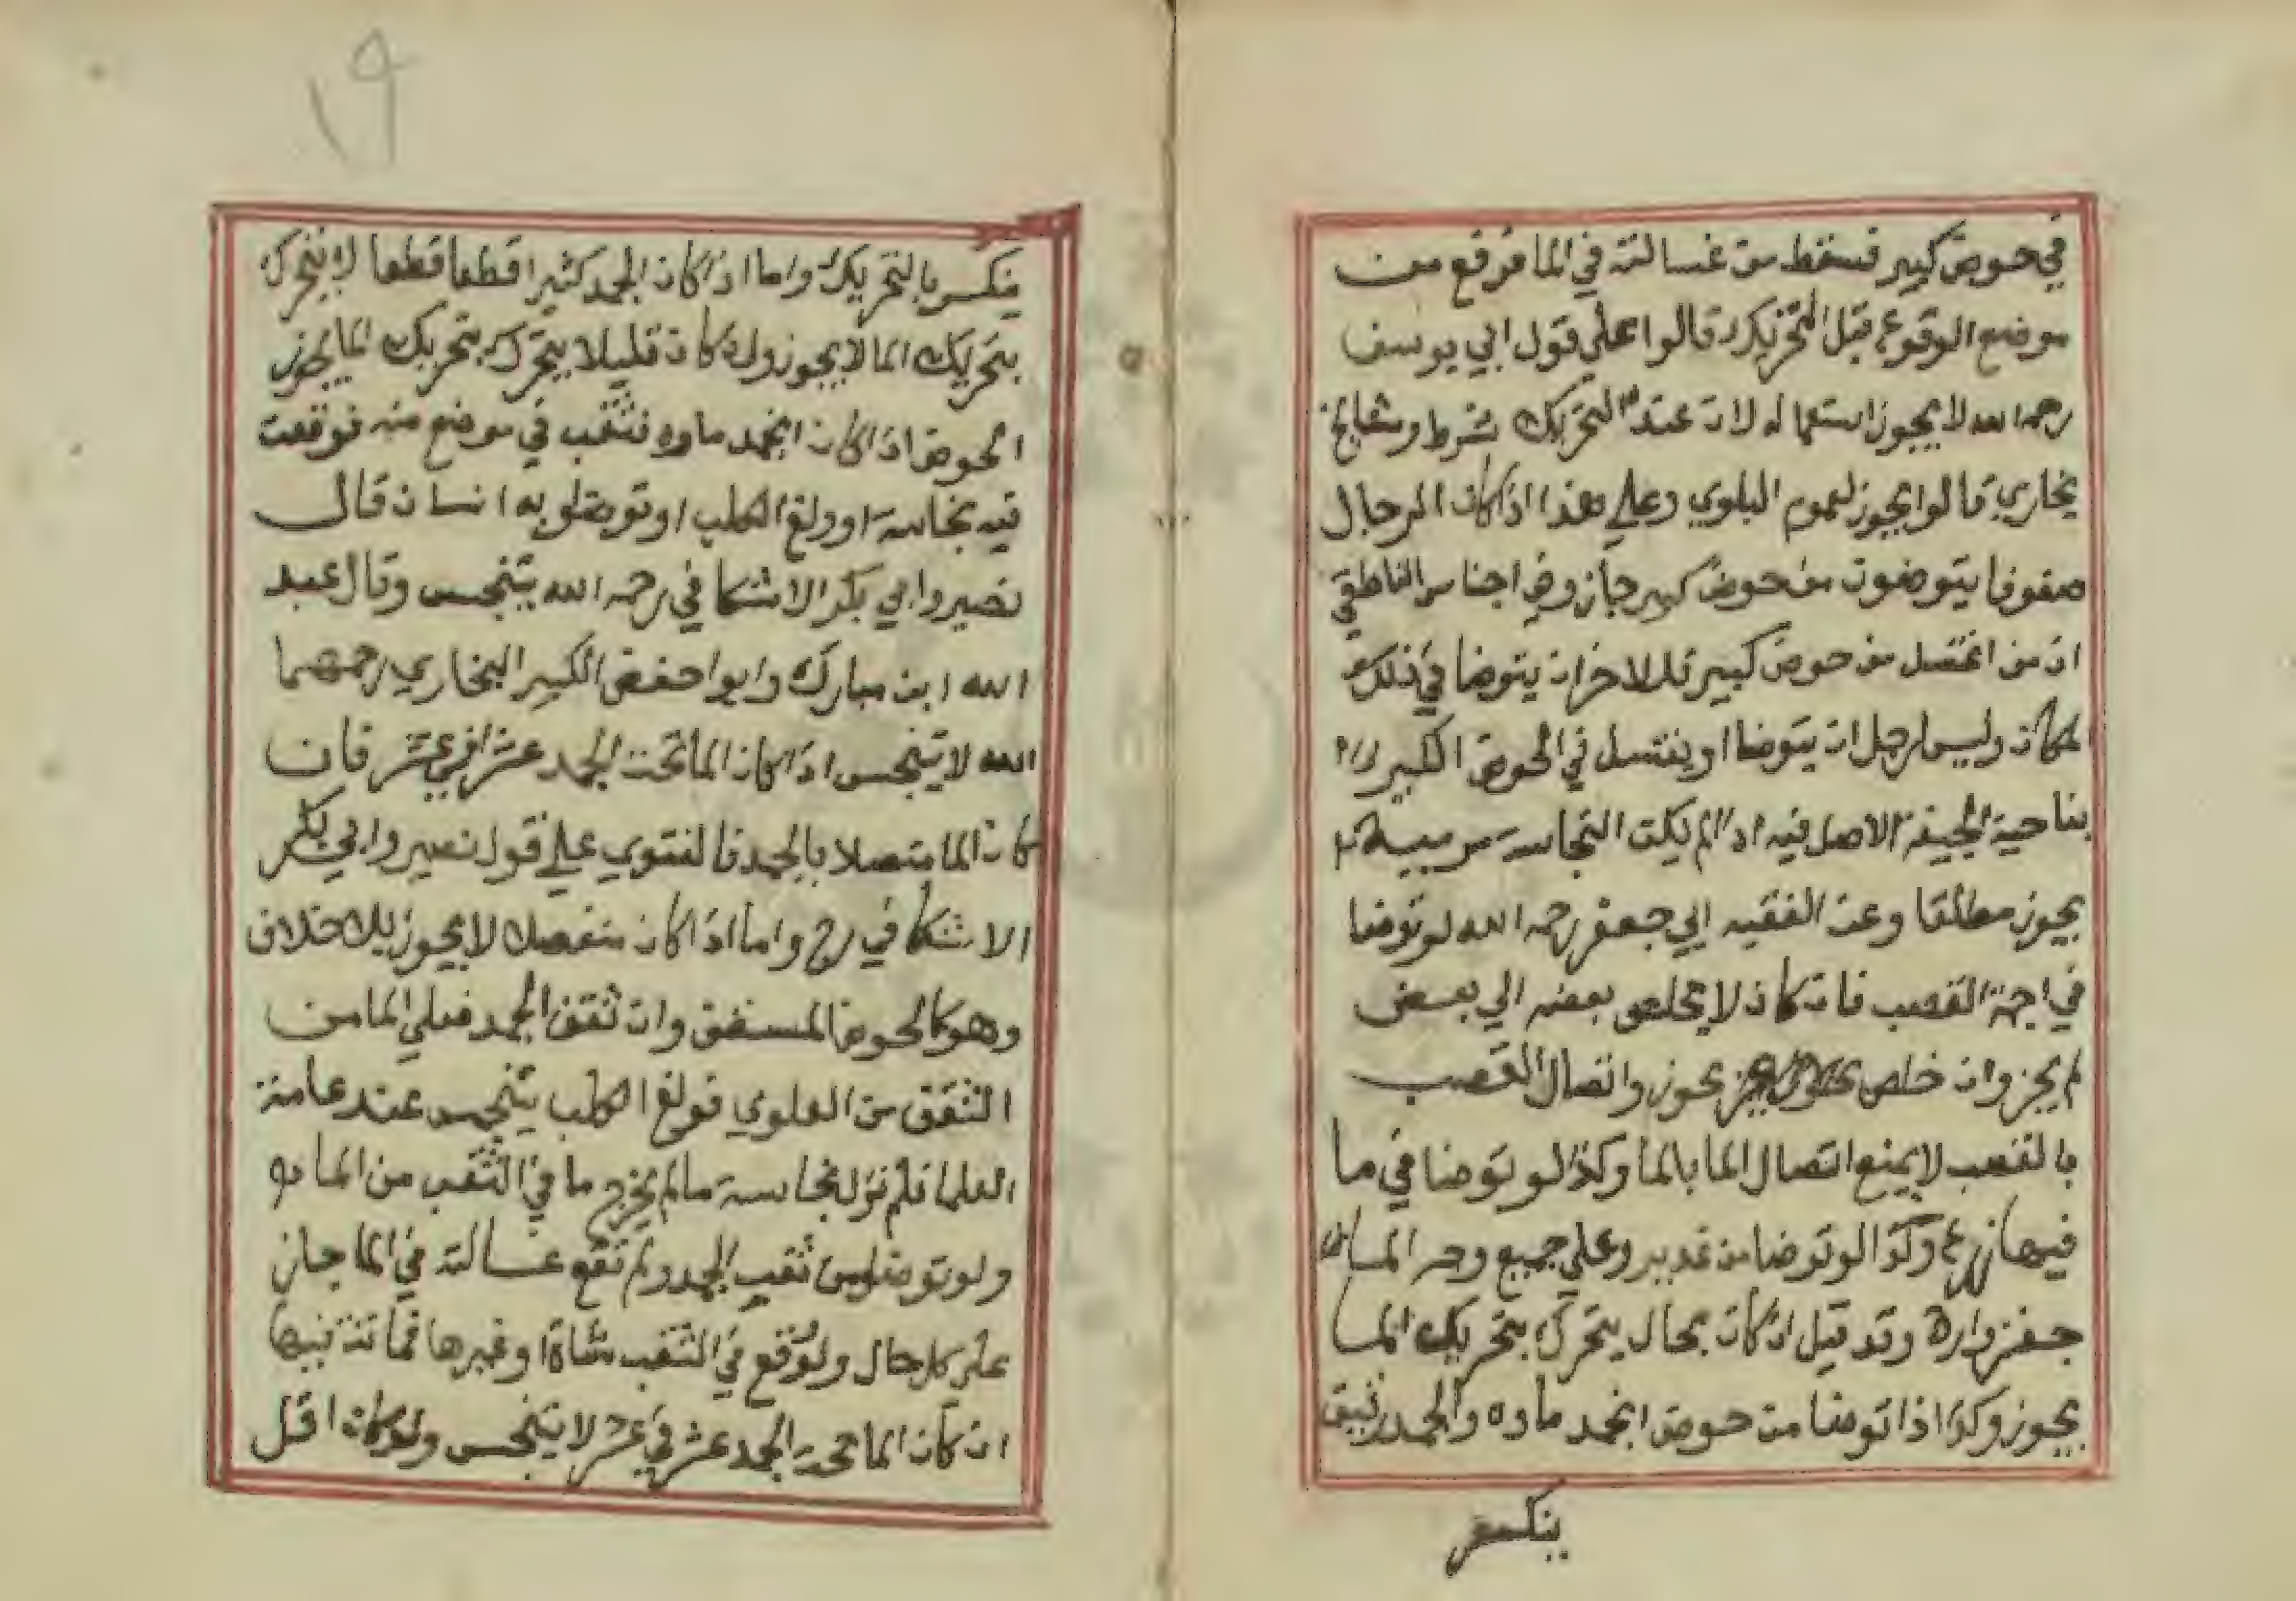 في حوض كبير فسقط من غسالته في الما فرفع من
موضع الوقوع قبل التحريك قالوا علي قول ابي يوسف
رحمه الله لا يجوز استعماله لان عنده التحريك شرط ومشايخ
بخاري قالوا يجوز لعموم البلوي وعلي هذا اذا كان الرجال
صفوفا يتوضون من حوض كبير جاز وفي اجناس الناطفي
ان من اغتسل من حوض كبير فللاخر ان يتوضا في ذلك
المكان وليس لرجل ان يتوضا او يغتسل في الحوض الكبير
بناحية الجيفة الاصل فيه اذا لم يكن النجاسة مرييه
يجوز مطلقا وعن الفقيه ابي جعفر رحمه الله لو توضا
في اجمة القصب فان كان لا يخلص بعضه الي بعض
لم يجز وان خلص يجوز واتصال القصب
بالقصب لا يمنع اتصال الما بالما وكذا لو توضا في ما
فيها زرع وكذا لو توضا من غدير وعلي جميع وجه الما
جغزواره وقد قيل ان كان بحال يتحرك بتحريك الما
يجوز وكذا اذا توضا من حوض انجمد ماوه والجمد رقيق
ينكسر
١٩
ينكسر بالتحريك واما اذا كان الجمد كثيرا قطعا قطعا لا يتحرك
بتحريك الما لا يجوز وان كان قليلا يتحرك بتحريك الما يجوز
الحوض اذا كان انجمد ماوه فثقب في موضع منه فوقعت
فيه نجاسة او ولغ الكلب او توضا به انسان قال
نصير وابي بكر الاشكافي رحمه الله يتنجس وقال عبد
الله ابن مبارك وابوا حفص الكبير البخاري رحمهما
الله لا يتنجس اذا كان الما تحت الجمد عشرا في عشر فان
كان الما متصلا بالجمد فالفتوي علي قول نصير وابي بكر
الاشكافي رح واما اذا كان منفصلا لا يجوز بلا خلاف
وهو كالحوض المسقف وان ثقف الجمد فعلي الما من
الثقف من العلوي فولغ الكلب يتنجس عند عامة
العلما فلم نزل نجاسة ما لم يخرج ما في الثقب من الما
ولو توضا من ثقب الجمد ولم تقع غسالته في الما جاز
علي كل حال ولو وقع في الثقب شاة او غيرها فماتت فيها
ان كان الما تحت الجمد عشر في عشر لا يتنجس ولو كان اقل